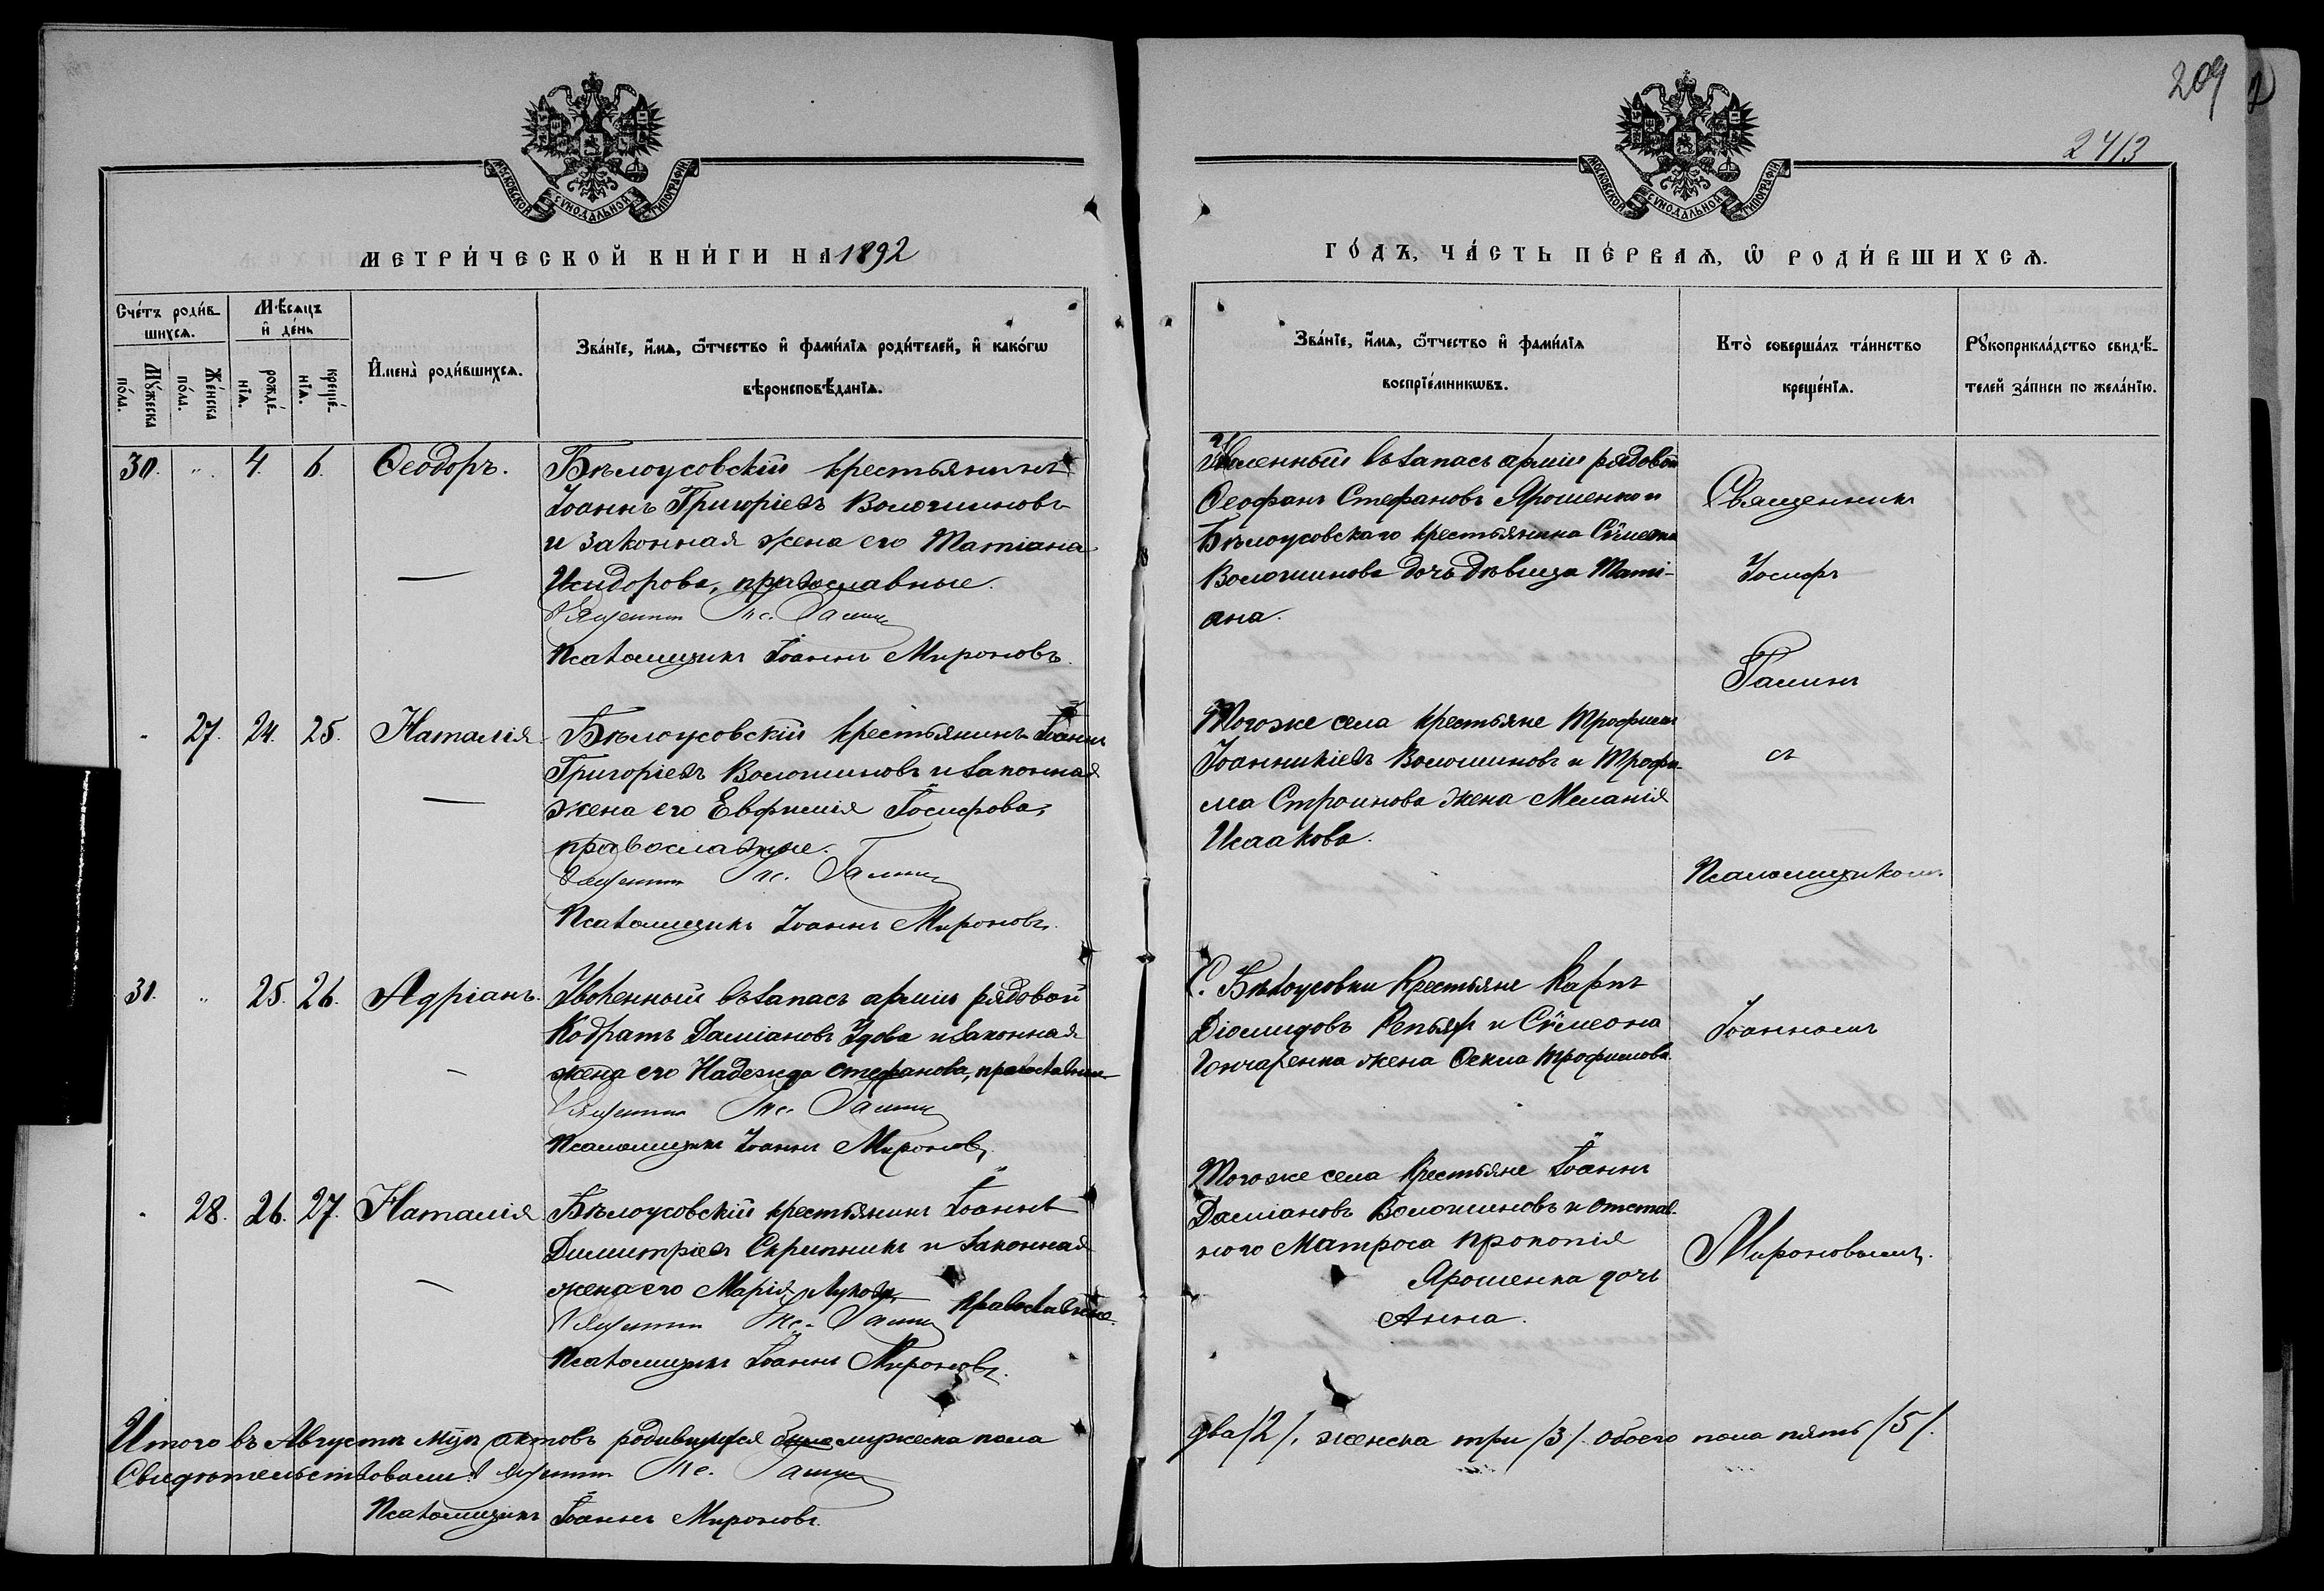 209
2413
МОСКОВСКОЙ СѴНОДАЛЬНОЙ ТИПОГРАФІИ
МОСКОВСКОЙ СѴНОДАЛЬНОЙ ТИПОГРАФІИ
МЕТРИ́ЧЕСКОЙ КНИ́ГИ НА 1892
ГО́ДЪ, ЧА́СТЬ ПЕ́РВАѦ, Ѡ҆ РОДИ́ВШИХСѦ.
Сче́тъ роди́в-
шихсѧ.
Мѣ́сѧцъ
и҆ де́нь
Мꙋ́жеска по́ла.
Же́нска по́ла.
рожде́-
нїѧ.
креще́-
нїѧ.
И҆мена̀ роди́вшихсѧ.
Зва́нїе, и҆́мѧ, ѻ҆́тчество и҆ фами́лїѧ роди́телей, и҆ како́гѡ
вѣроисповѣ́данїѧ.
Зва́нїе, и҆́мѧ, ѻ҆́тчество и҆ фами́лїѧ
воспрїе́мникѡвъ.
Кто̀ соверша́лъ та́инство
креще́нїѧ.
Рꙋкоприкла́дство свидѣ́-
телей за́писи по жела́нїю.
30. „ 4. 6. Ѳеодоръ.
Бѣлоусовскій крестьянинъ
Іоаннъ Григоріевъ Волошиновъ
и законная жена его Татіана
Исидорова, православные.
Священникъ Іос. Галинъ
Псаломщикъ Іоаннъ Мироновъ.
Уволенный въ запасъ арміи рядовой
Ѳеофанъ Стефановъ Ярошенко и
Бѣлоусовскаго крестьянина Сѵмеона
Волошинова дочь дѣвица Таті-
ана.
Священникъ
Іосифъ
Галинъ
съ
Псаломщикомъ
Іоанномъ
Мироновымъ.
„ 27. 24. 25. Наталія
Бѣлоусовскій крестьянинъ Іоаннъ
Григоріевъ Волошиновъ и законная
жена его Евфимія Іосифова,
православные.
Священникъ Іос. Галинъ
Псаломщикъ Іоаннъ Мироновъ.
Того же села крестьяне Трофимъ
Іоанникіевъ Волошиновъ и Трофи-
ма Строинова жена Меланія
Исаакова.
31. „ 25. 26. Адріанъ.
Уволенный въ запасъ арміи рядовой
Кодратъ Даміановъ Удова и законная
жена его Надежда Стефанова, православные
Священникъ Іос. Галинъ
Псаломщикъ Іоаннъ Мироновъ.
С. Бѣлоусовки крестьяне Карпъ
Діомидовъ Репьяхъ и Сѵмеона
Гончаренка жена Ѳекла Трофимова.
„ 28. 26. 27. Наталія
Бѣлоусовскій крестьянинъ Іоаннъ
Димитріевъ Скрипникъ и законная
жена его Марія Лукова, православные.
Священникъ Іос. Галинъ
Псаломщикъ Іоаннъ Мироновъ.
Того же села крестьяне Іоаннъ
Даміановъ Волошиновъ и отстав-
ного матроса Прокопія
Ярошенка дочь
Анна.
Итого въ Августѣ мцѣ актовъ родившихся мужеска пола
два /2/, женска три /3/. обоего пола пять /5/.
Свидѣтельствовали: Священникъ Іос. Галинъ
Псаломщикъ Іоаннъ Мироновъ.